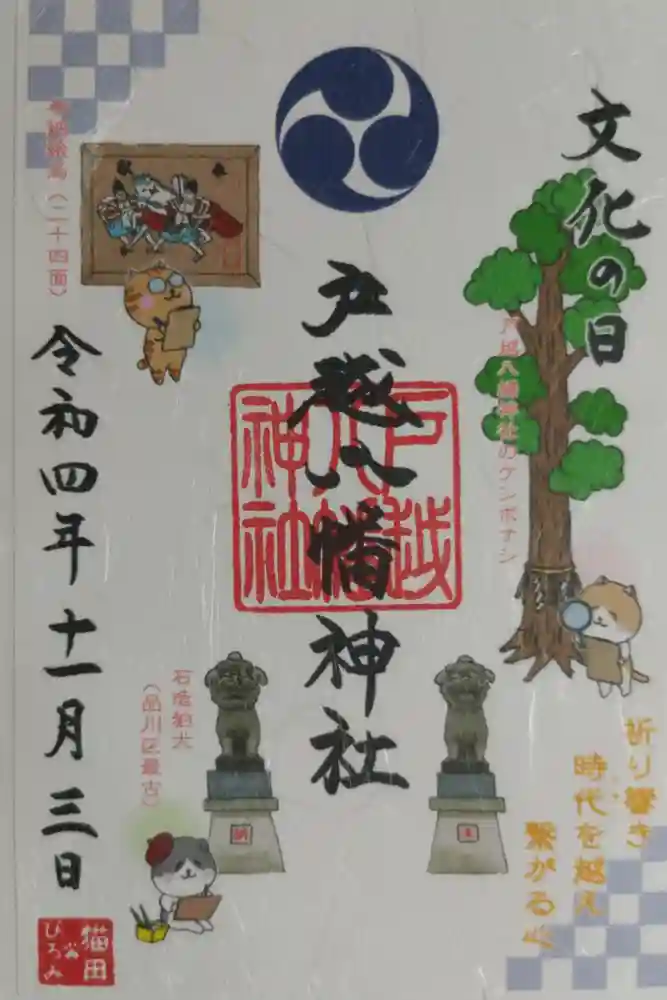 文化の日
戸越八幡神社のケンポナシ
祈り響き
時代を越え
繋がる心
戸越八幡神社
戸越八幡神社
奉
納
石造狛犬
（品川区最古）
絵画（二十四面）
令和四年十一月三日
猫田
ひろみ